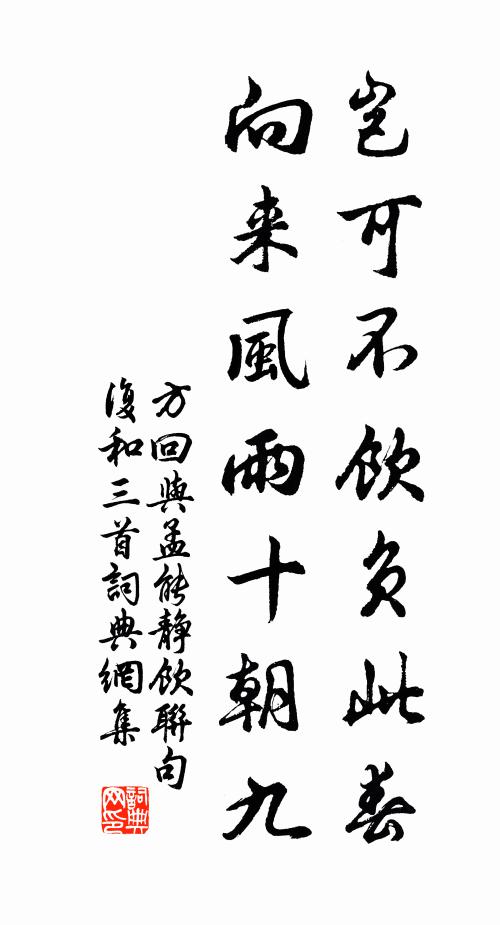 豈可不飲負此春
向来風雨十朝九
方回與孟能静飲聯句
復和三首詞典網集
詞典
网印